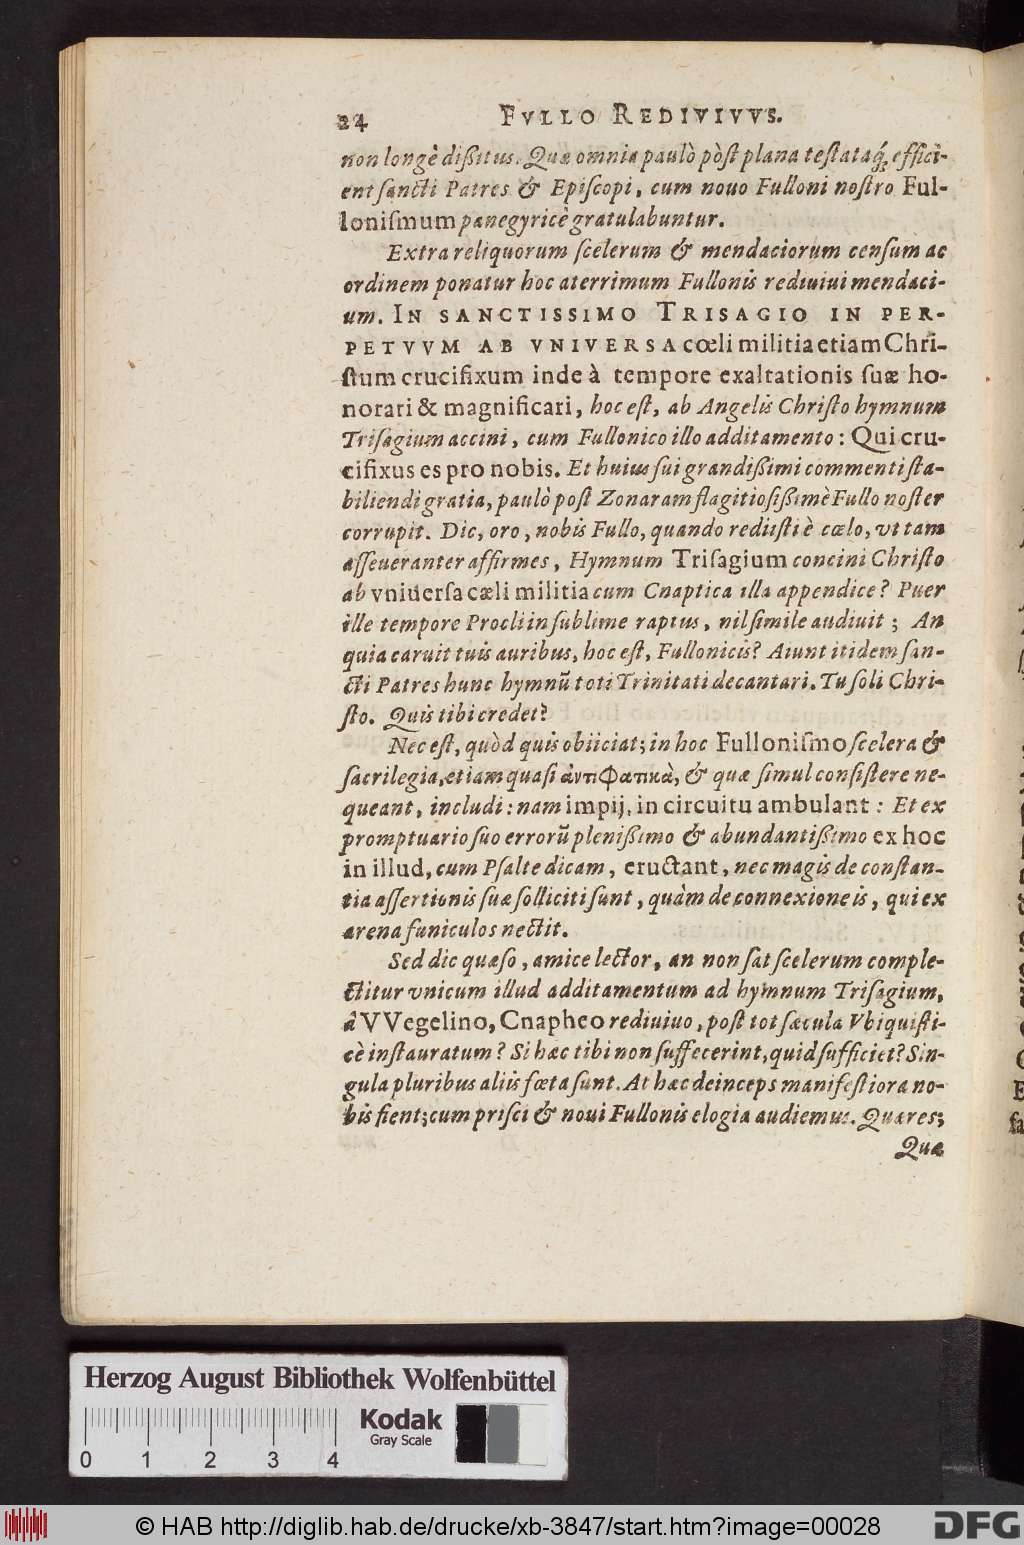 24 FVLLO REDIVIVVS.
non longè dißitus. Quæ omnia paulò pòſt plana teſtataq́; effici-
ent ſancti Patres & Epiſcopi, cum nouo Fulloni noſtro Ful-
loniſmum panegyricè gratulabuntur.
Extra reliquorum ſcelerum & mendaciorum cenſum ac
ordinem ponatur hoc aterrimum Fullonis rediuiui mendaci-
um. IN SANCTISSIMO TRISAGIO IN PER-
PETVVM AB VNIVERSA cœli militia etiam Chri-
ſtum crucifixum inde à tempore exaltationis ſuæ ho-
norari & magnificari, hoc eſt, ab Angelis Chriſto hymnum
Triſagium accini, cum Fullonico illo additamento: Qui cru-
cifixus es pro nobis. Et huius ſui grandißimi commenti ſta-
biliendi gratia, paulò poſt Zonaram flagitioſißimè Fullo noſter
corrupit. Dic, oro, nobis Fullo, quando rediiſti è cœlo, vt tam
aſſeueranter affirmes, Hymnum Triſagium concini Chriſto
ab vniuerſa cæli militia cum Cnaptica illa appendice? Puer
ille tempore Procli in ſublime raptus, nil ſimile audiuit; An
quia caruit tuis auribus, hoc eſt, Fullonicis? Aiunt itidem ſan-
cti Patres hunc hymnũ toti Trinitati decantari. Tu ſoli Chri-
ſto. Quis tibi credet?
Nec eſt, quòd quis obiiciat; in hoc Fulloniſmo ſcelera &
ſacrilegia, etiam quaſi ἀντιφατικὰ, & quæ ſimul conſiſtere ne-
queant, includi: nam impij, in circuitu ambulant: Et ex
promptuario ſuo errorũ plenißimo & abundantißimo ex hoc
in illud, cum Pſalte dicam, eructant, nec magis de conſtan-
tia aſſertionis ſuæ ſolliciti ſunt, quàm de connexione is, qui ex
arena funiculos nectit.
Sed dic quæſo, amice lector, an non ſat ſcelerum comple-
ctitur vnicum illud additamentum ad hymnum Triſagium,
â VVegelino, Cnapheo rediuiuo, poſt tot ſæcula Vbiquiſti-
cè inſtauratum? Si hæc tibi non ſuffecerint, quid ſufficiet? Sin-
gula pluribus aliis fœta ſunt. At hæc deinceps manifeſtiora no-
bis fient; cum priſci & noui Fullonis elogia audiemus. Quæ res;
Quæ
Herzog August Bibliothek Wolfenbüttel
0 1 2 3 4
Kodak
Gray Scale
© HAB http://diglib.hab.de/drucke/xb-3847/start.htm?image=00028
DFG